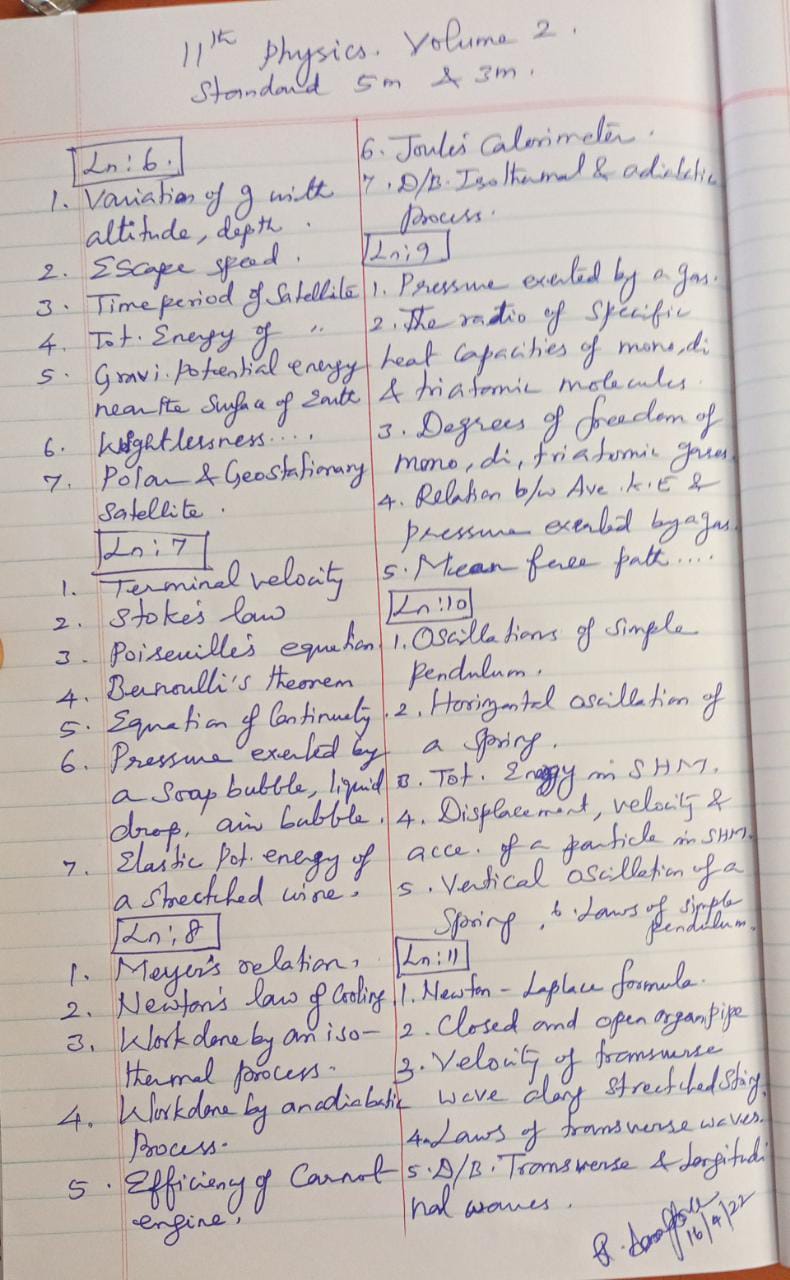 11th Physics. Volume 2.
Standard 5m & 3m.
Ln:6.
1. Variation of g with
altitude, depth.
2. Escape speed.
3. Time period of Satellite
4. Tot. Energy of "
5. Gravi. potential energy
near the Surface of Earth
6. Weightlessness....
7. Polar & Geostationary
Satellite.
Ln:7
1. Terminal velocity
2. Stoke's law
3. Poiseuille's equation
4. Bernoulli's theorem
5. Equation of Continuety.
6. Pressure exerted by
a soap bubble, liquid
drop, air bubble.
7. Elastic Pot. energy of
a stretched wire.
Ln:8
1. Meyer's relation,
2. Newton's law of Cooling
3. Work done by an iso-
thermal process.
4. Workdone by an adiabatic
Process.
5. Efficieny of Carnot
engine.
6. Joule's Calorimeter.
7. D/B. Isothermal & adiabatic
process.
Ln:9
1. Pressure exerted by a gas.
2. The ratio of Specific
heat Capacities of mono, di
& triatomic molecules.
3. Degrees of freedom of
mono, di, triatomic gases.
4. Relation b/w Ave. k.E &
pressure exerted by a gas.
5. Mean free path....
Ln:10
1. Oscillations of Simple
Pendulum.
2. Horizontal oscillation of
a Spring.
3. Tot. Energy in SHM.
4. Displacement, velocity &
acce. of a particle in SHM.
5. Vertical Oscillation of a
Spring, 6. Laws of simple
pendulum.
Ln:11
1. Newton - Laplace formula.
2. Closed and open organ pipe
3. Velocity of transverse
wave along Stretched String.
4. Laws of transverse waves.
5. D/B. Transverse & Longitudi
nal waves.
16/4/22